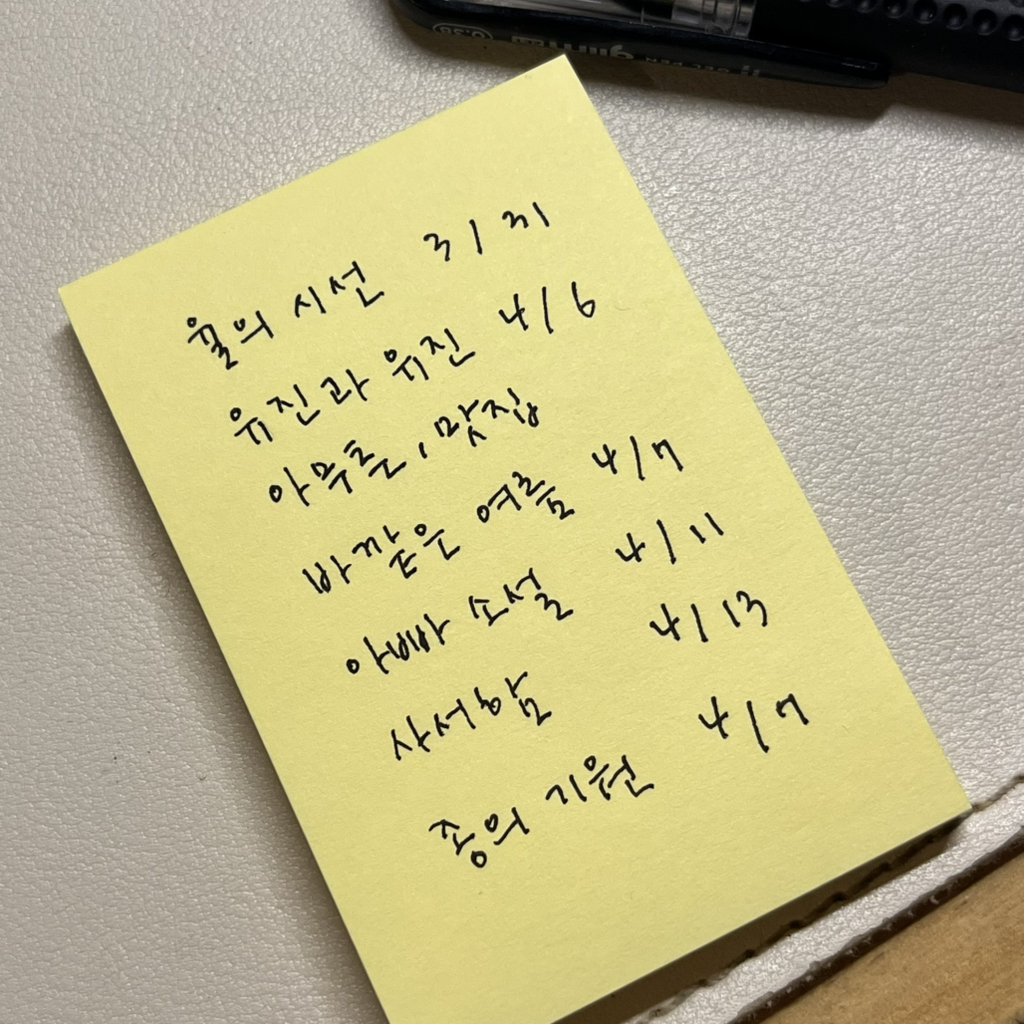 0.38
율의 시선 3/31
유진과 유진 4/6
아무튼, 맛집
바깥은 여름 4/7
아빠 소설 4/11
사서함 4/13
종의 기원 4/7